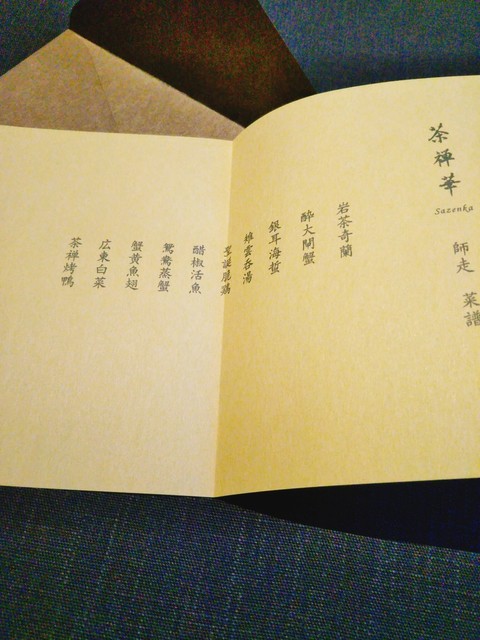 茶禅華
Sazenka
師走 菜譜
岩茶奇蘭
酔大閘蟹
銀耳海蜇
雉雲呑湯
聖誕脆鶏
醋椒活魚
鴛鴦蒸蟹
蟹黄魚翅
広東白菜
茶禅烤鴨